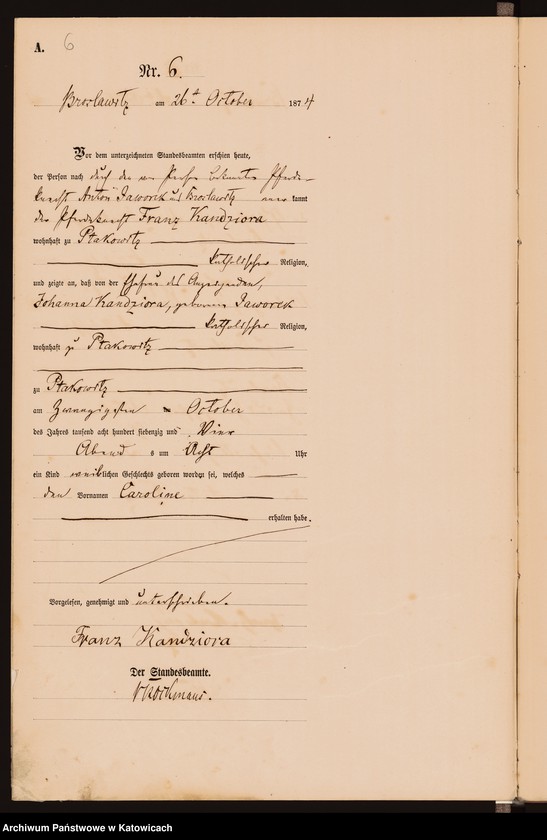 A. 6
Nr. 6.
Broslawitz am 26t October 1874
Vor dem unterzeichneten Standesbeamten erschien heute,
der Person nach durch den von Person bekannten Pferde-
knecht Anton Jaworek aus Broslawitz kannt
der Pferdeknecht Franz Kandziora
wohnhaft zu Ptakowitz
katholischer Religion,
und zeigte an, daß von der Ehefrau des Anzeigenden,
Johanna Kandziora, geborene Jaworek
katholischer Religion,
wohnhaft zu Ptakowitz
zu Ptakowitz
am Zwanzigsten October
des Jahres tausend acht hundert siebenzig und Vier
Abends um Acht Uhr
ein Kind weiblichen Geschlechts geboren worden sei, welches
den Vornamen Caroline
erhalten habe.
Vorgelesen, genehmigt und unterschrieben.
Franz Kandziora
Der Standesbeamte.
Archiwum Państwowe w Katowicach